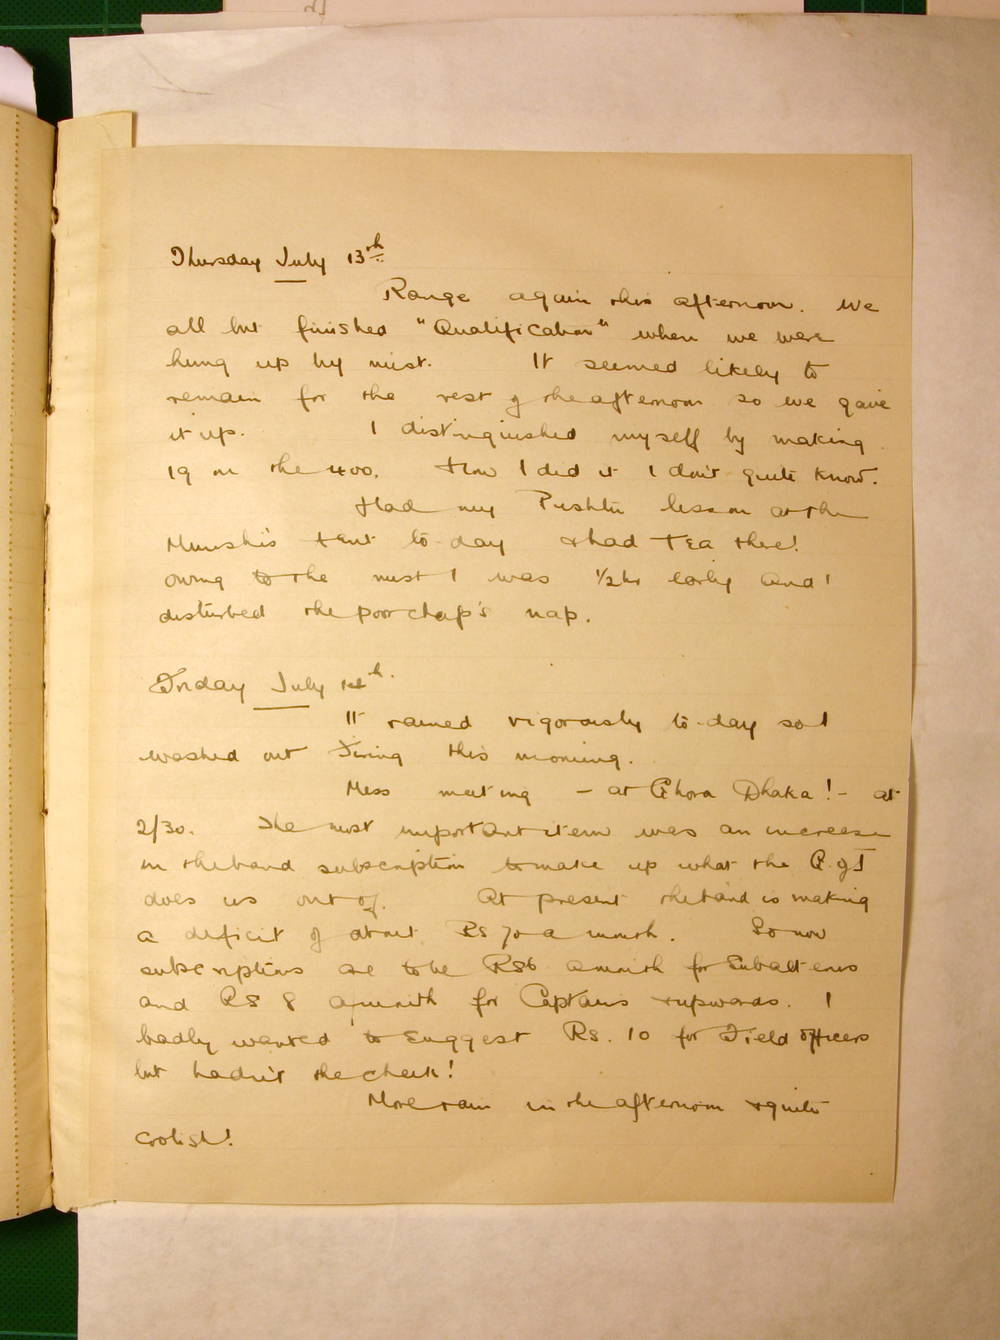 Thursday July 13th
Range again this afternoon. We
all but finished "Qualification" when we were
hung up by mist. It seemed likely to
remain for the rest of the afternoon so we gave
it up. I distinguished myself by making
19 on the 400. How I did it I don't quite know.
Had my Pushtu lesson at the
Munshi's tent to-day & had tea there!
Owing to the mist I was 1/2 hr early and I
disturbed the poor chap's nap.
Friday July 14th.
It rained vigorously to-day so I
washed out Firing this morning.
Mess meeting - at Ghora Dhaka! - at
2/30. The most important item was an increase
in the band subscription to make up what the G. of I
does us out of. At present the band is making
a deficit of about Rs 70 a month. So now
subscriptions are to be Rs 6 a month for Subalterns
and Rs 8 a month for Captains & upwards. I
badly wanted to suggest Rs. 10 for Field Officers
but hadn't the cheek!
More rain in the afternoon & quite
coolish!